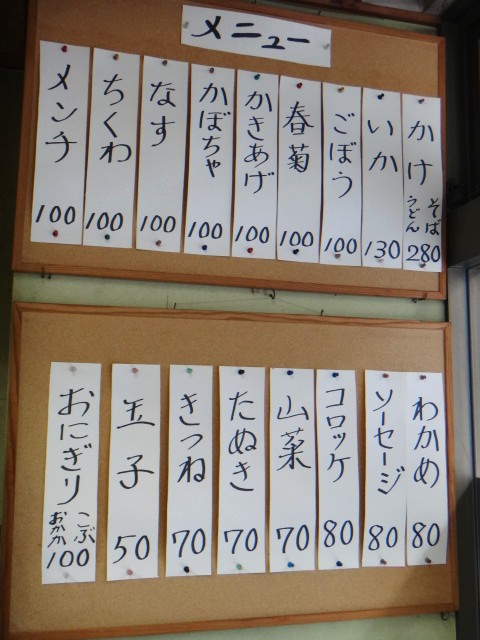 メニュー
かけ そば うどん 280
いか 130
ごぼう 100
春菊 100
かきあげ 100
かぼちゃ 100
なす 100
ちくわ 100
メンチ 100
わかめ 80
ソーセージ 80
コロッケ 80
山菜 70
たぬき 70
きつね 70
玉子 50
おにぎり こぶ おかか 100